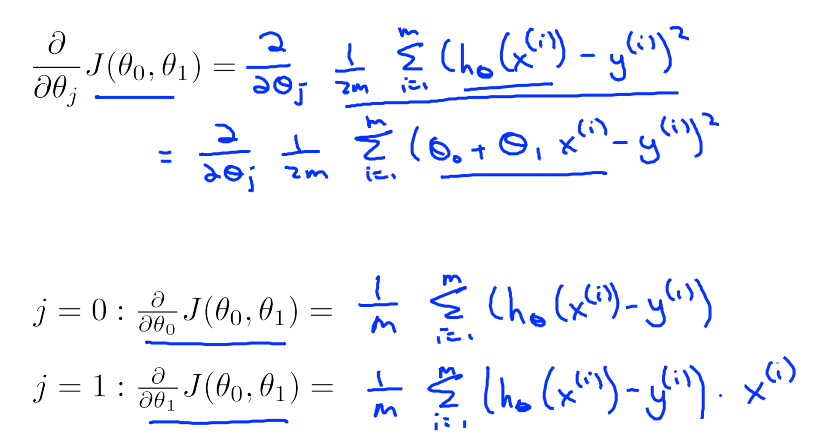 ∂/∂θⱼ J(θ₀, θ₁) = ∂/∂θⱼ 1/2m Σᵢ₌₁ᵐ (h_θ(x⁽ⁱ⁾) − y⁽ⁱ⁾)²
= ∂/∂θⱼ 1/2m Σᵢ₌₁ᵐ (θ₀ + θ₁ x⁽ⁱ⁾ − y⁽ⁱ⁾)²
j = 0 : ∂/∂θ₀ J(θ₀, θ₁) = 1/m Σᵢ₌₁ᵐ (h_θ(x⁽ⁱ⁾) − y⁽ⁱ⁾)
j = 1 : ∂/∂θ₁ J(θ₀, θ₁) = 1/m Σᵢ₌₁ᵐ (h_θ(x⁽ⁱ⁾) − y⁽ⁱ⁾) · x⁽ⁱ⁾